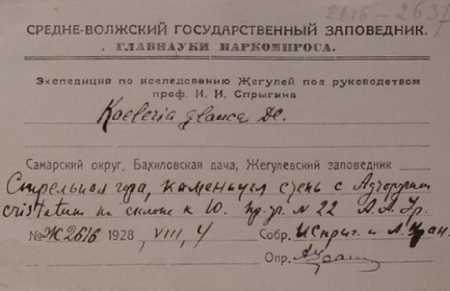 2616-2637
СРЕДНЕ-ВОЛЖСКИЙ ГОСУДАРСТВЕННЫЙ ЗАПОВЕДНИК.
ГЛАВНАУКИ НАРКОМПРОСА.
Экспедиция по исследованию Жегулей под руководством
проф. И. И. Спрыгина
Koeleria glauca DC.
Самарский округ, Бахиловская дача, Жегулевский заповедник
Стрельная гора, каменист степь с Agropyrum
cristatum на склоне к Ю. пр. уч. N 22 А. А. Ур.
№ Ж2616 1928, VIII, 4 Собр. И Спрыг. и А. Уран.
Опр. АУран